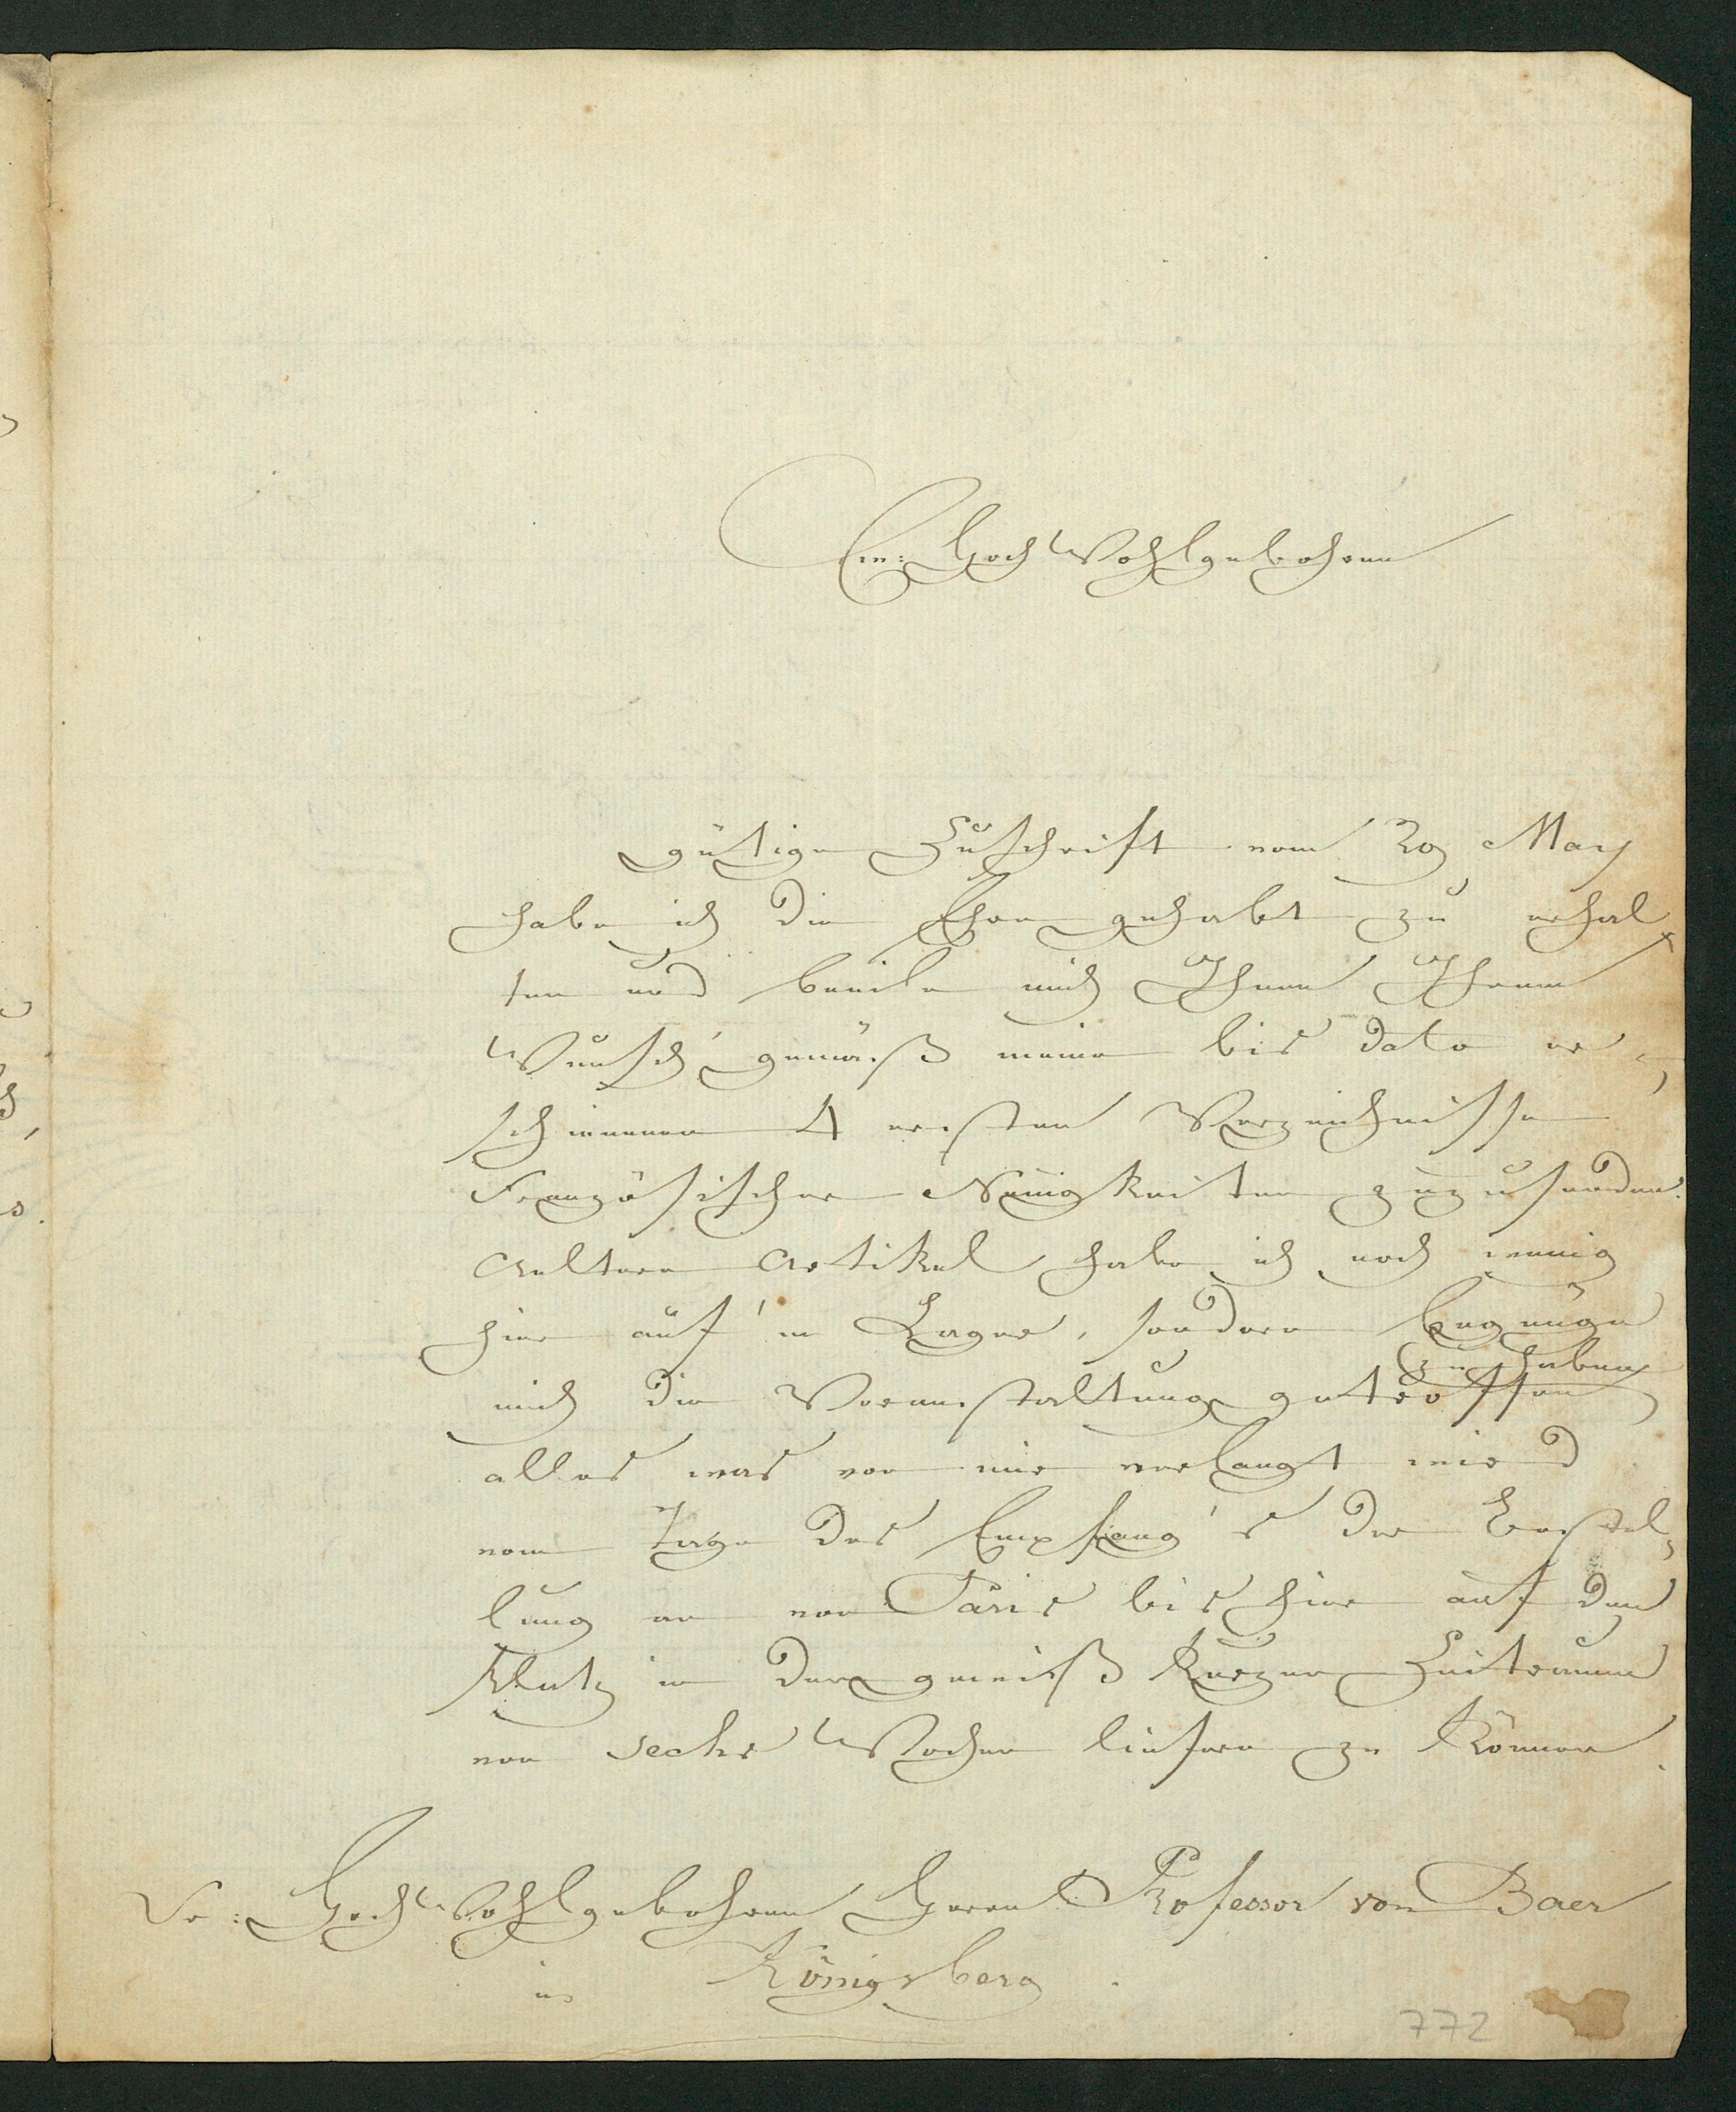 Ew: HochWohlgebohren
gütige Zuschrift vom 29 May
habe ich die Ehre gehabt zu erhal¬
ten und beeile mich Ihnen Ihrem
Wunsch' gemäß meine bis dato er¬
schienenen 4 ersten Verzeichnisse
Französischer Neuigkeiten zuzusenden.
Aeltere Artikel habe ich noch wenig
hier auf'm Lager, sondern begnüge
zu haben
mich die Veranstaltung getroffen
alles was von mir verlangt wird
vom Tage des Empfang's der Bestel¬
lung an von Paris bis hier auf den
Platz in der gewiß kurzen Zeitraume
von sechs Wochen liefern zu können.
Sr: HochWohlgebohren Herrn Professor von Baer
in Königsberg.
772